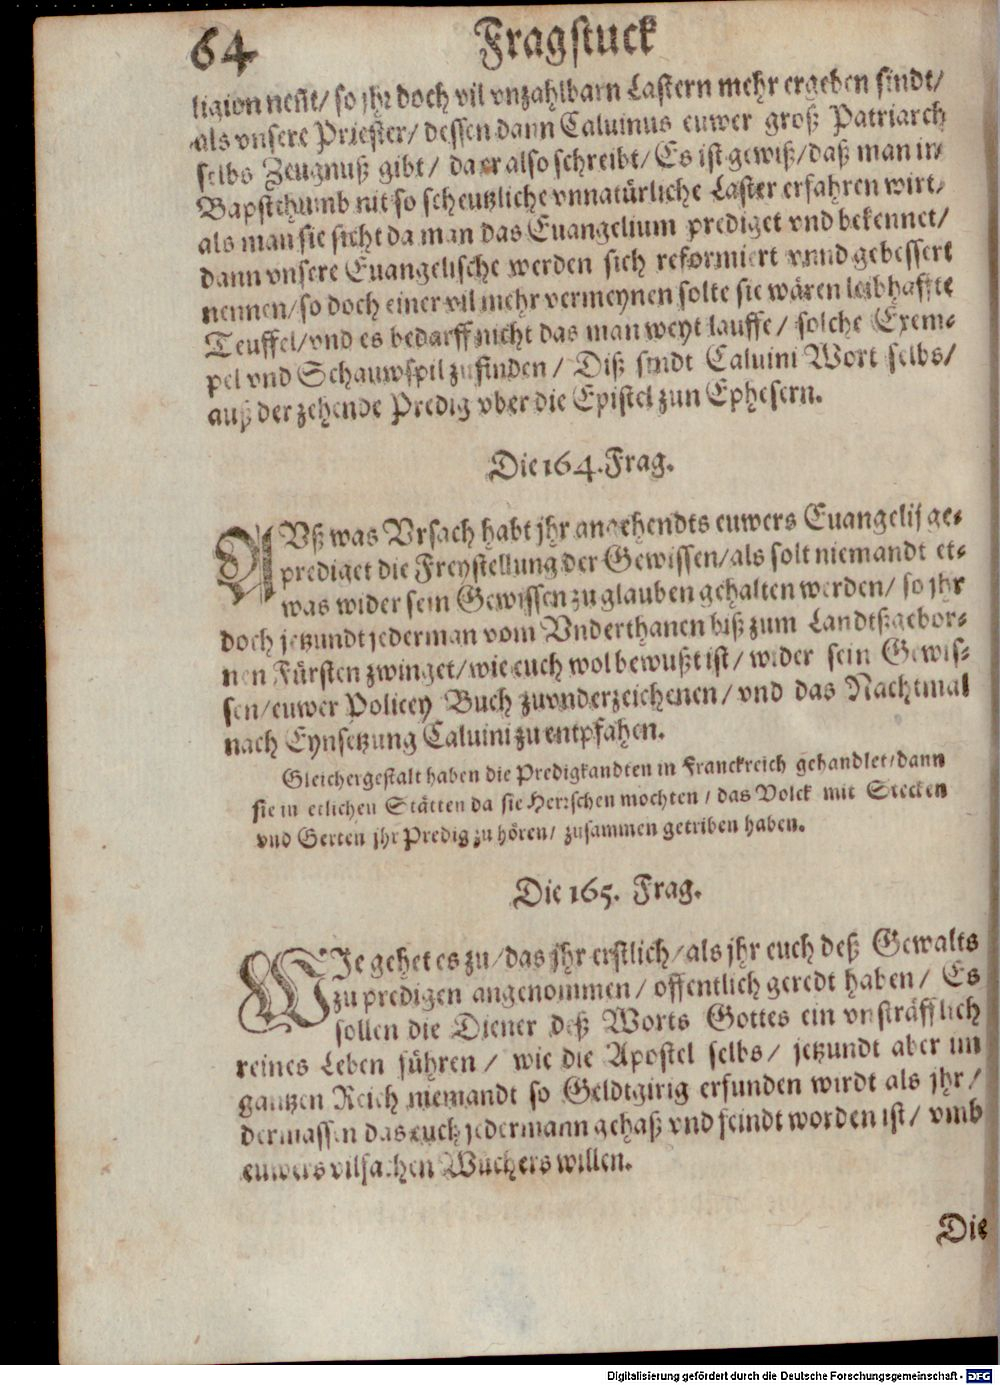 64 Fragstuck
ligion nesit/ so jhr doch vil vnzahlbarn Lastern mehr ergeben sindt/
als vnsere Priester/ dessen dann Caluinus euwer groß Patriarch
selbs Zeugnuß gibt/ da er also schreibt/ Es ist gewiß/ daß man im
Bapsthumb nit so scheutzliche vnnatürliche Laster erfahren wirt/
als man sie sicht da man das Euangelium prediget vnd bekennet/
dann vnsere Euangelische werden sich reformiert vnnd gebessert
nennen/ so doch einer vil mehr vermeynen solte sie wären leibhaffte
Teuffel/ vnd es bedarff nicht das man weyt lauffe/ solche Exem-
pel vnd Schauwspil zufinden/ Diß sindt Caluini Wort selbs/
auß der zehende Predig vber die Epistel zun Ephesern.
Die 164. Frag.
AVß was Vrsach habt jhr angehendts euwers Euangelij ge-
prediget die Freystellung der Gewissen/ als solt niemandt et-
was wider sein Gewissen zu glauben gehalten werden/ so jhr
doch jetzundt jederman vom Vnderthanen biß zum Landtßgebor-
nen Fürsten zwinget/ wie euch wol bewußt ist/ wider sein Gewis-
sen/ euwer Policey Buch zuvnderzeichenen/ vnd das Nachtmal
nach Eynsetzung Caluini zu entpfahen.
Gleichergestalt haben die Predigkandten in Franckreich gehandlet/ dann
sie in etlichen Stätten da sie Herrschen mochten/ das Volck mit Stecken
vnd Gerten jhr Predig zu hören/ zusammen getriben haben.
Die 165. Frag.
WIe gehet es zu/ das jhr erstlich/ als jhr euch deß Gewalts
zu predigen angenommen/ offentlich geredt haben/ Es
sollen die Diener deß Worts Gottes ein vnsträfflich
reines Leben führen/ wie die Apostel selbs/ jetzundt aber im
gantzen Reich niemandt so Geldtgirig erfunden wirdt als jhr/
dermassen das euch jedermann gehaß vnd feindt worden ist/ vmb
euwers vilfachen Wuchers willen.
Die
Digitalisierung gefördert durch die Deutsche Forschungsgemeinschaft - DFG